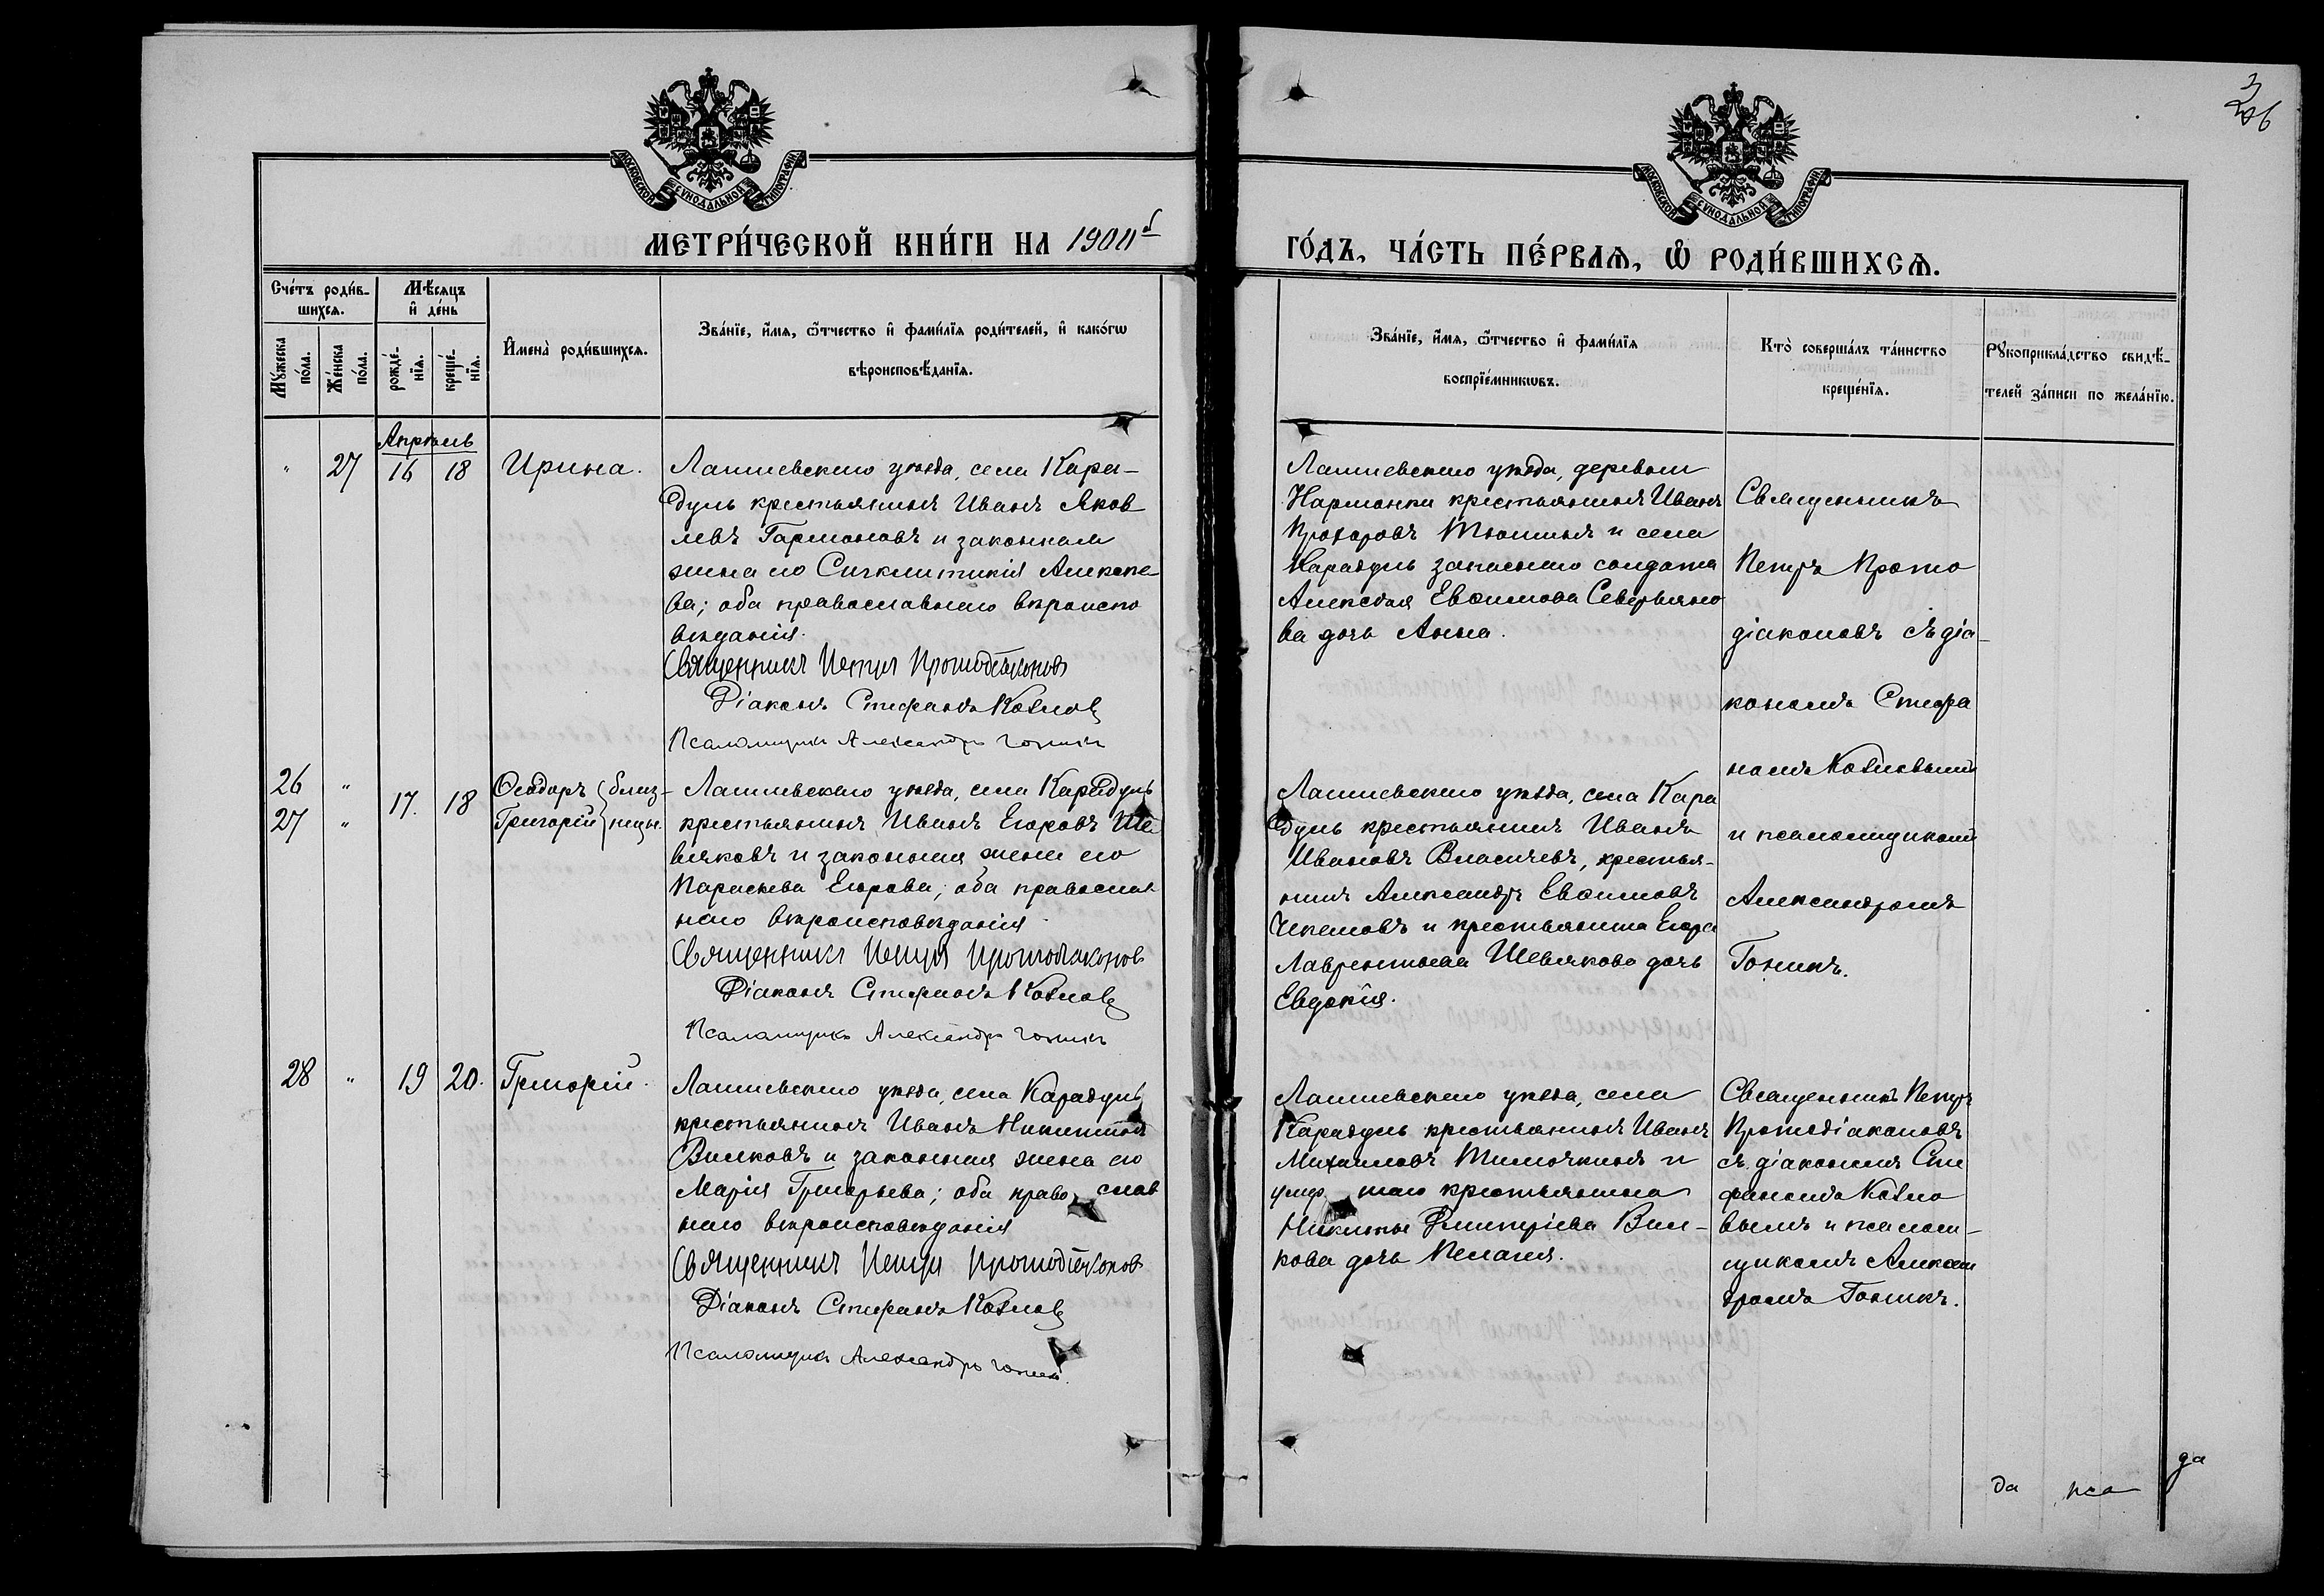 3
206
МОСКОВСКОЙ СѴНОДАЛЬНОЙ ТИПОГРАФІИ
МОСКОВСКОЙ СѴНОДАЛЬНОЙ ТИПОГРАФІИ
МЕТРИ́ЧЕСКОЙ КНИ́ГИ НА 1900й
ГО́ДЪ, ЧА́СТЬ ПЕ́РВАѦ, Ѽ РОДИ́ВШИХСѦ.
Сче́тъ роди́в-
шихсѧ.
Мѣ́сѧцъ
и҆ де́нь
Мꙋ́жеска
по́ла.
Же́нска
по́ла.
рожде́-
нїѧ.
креще́-
нїѧ.
И҆мена̀ роди́вшихсѧ.
Зва́нїе, и҆́мѧ, ѻ҆́тчество и҆ фами́лїѧ роди́телей, и҆ како́гѡ
вѣроисповѣ́данїѧ.
Зва́нїе, и҆́мѧ, ѻ҆́тчество и҆ фами́лїѧ
воспрїе́мникѡвъ.
Кто̀ соверша́лъ та́инство
креще́нїѧ.
Рꙋкоприкла́дство свидѣ́-
телей за́писи по жела́нїю.
Апрѣль
" 27 16 18 Ирина.
Лаишевскаго уѣзда, села Кара-
дуль крестьянинъ Иванъ Яков
левъ Гармоновъ и законная
жена его Синклитикія Алексѣе
ва; оба православнаго вѣроиспо
вѣданія.
Священникъ Петръ Протодіаконовъ
Діаконъ Стефанъ Козловъ
Псаломщикъ Александръ Гоникъ
Лаишевскаго уѣзда, деревни
Нармонки крестьянинъ Иванъ
Прохоровъ Тюшинъ и села
Карадуль запаснаго солдата
Алексѣя Евѳимова Северьяно
ва дочь Анна.
Священникъ
Петръ Прото
діаконовъ съ діа-
кономъ Стефа
номъ Козловымъ
и псаломщикомъ
Александромъ
Гоникъ.
26 "
27 "
17. 18
Ѳеодоръ близ-
Григорій нецы.
Лаишевскаго уѣзда, села Карадуль
крестьянинъ Иванъ Егоровъ Ше
вляковъ и законная жена его
Параскева Егорова; оба православ
наго вѣроисповѣданія
Священникъ Петръ Протодіаконовъ
Діаконъ Стефанъ Козловъ
Псаломщикъ Александръ Гоникъ
Лаишевскаго уѣзда, села Кара
дуль крестьянинъ Иванъ
Ивановъ Власичевъ, крестья-
нинъ Александръ Евѳимовъ
Чекмовъ и крестьянина Егора
Лаврентьева Шевлякова дочь
Евдокія.
28 " 19 20. Григорій.
Лаишевскаго уѣзда, села Карадуль
крестьянинъ Иванъ Никитинъ
Вилковъ и законная жена его
Марія Григорьева; оба право слав
наго вѣроисповѣданія
Священникъ Петръ Протодіаконовъ
Діаконъ Стефанъ Козловъ
Псаломщикъ Александръ Гоникъ.
Лаишевскаго уѣзда, села
Карадуль крестьянинъ Иванъ
Михаиловъ Тимочкинъ и
умер шаго крестьянина
Никиты Дмитріева Вил-
кова дочь Пелагія.
Священникъ Петръ
Протодіаконовъ
съ діакономъ Сте
фаномъ Козло
вымъ и псалом-
щикомъ Алексан
дромъ Гоникъ.
да
да пса